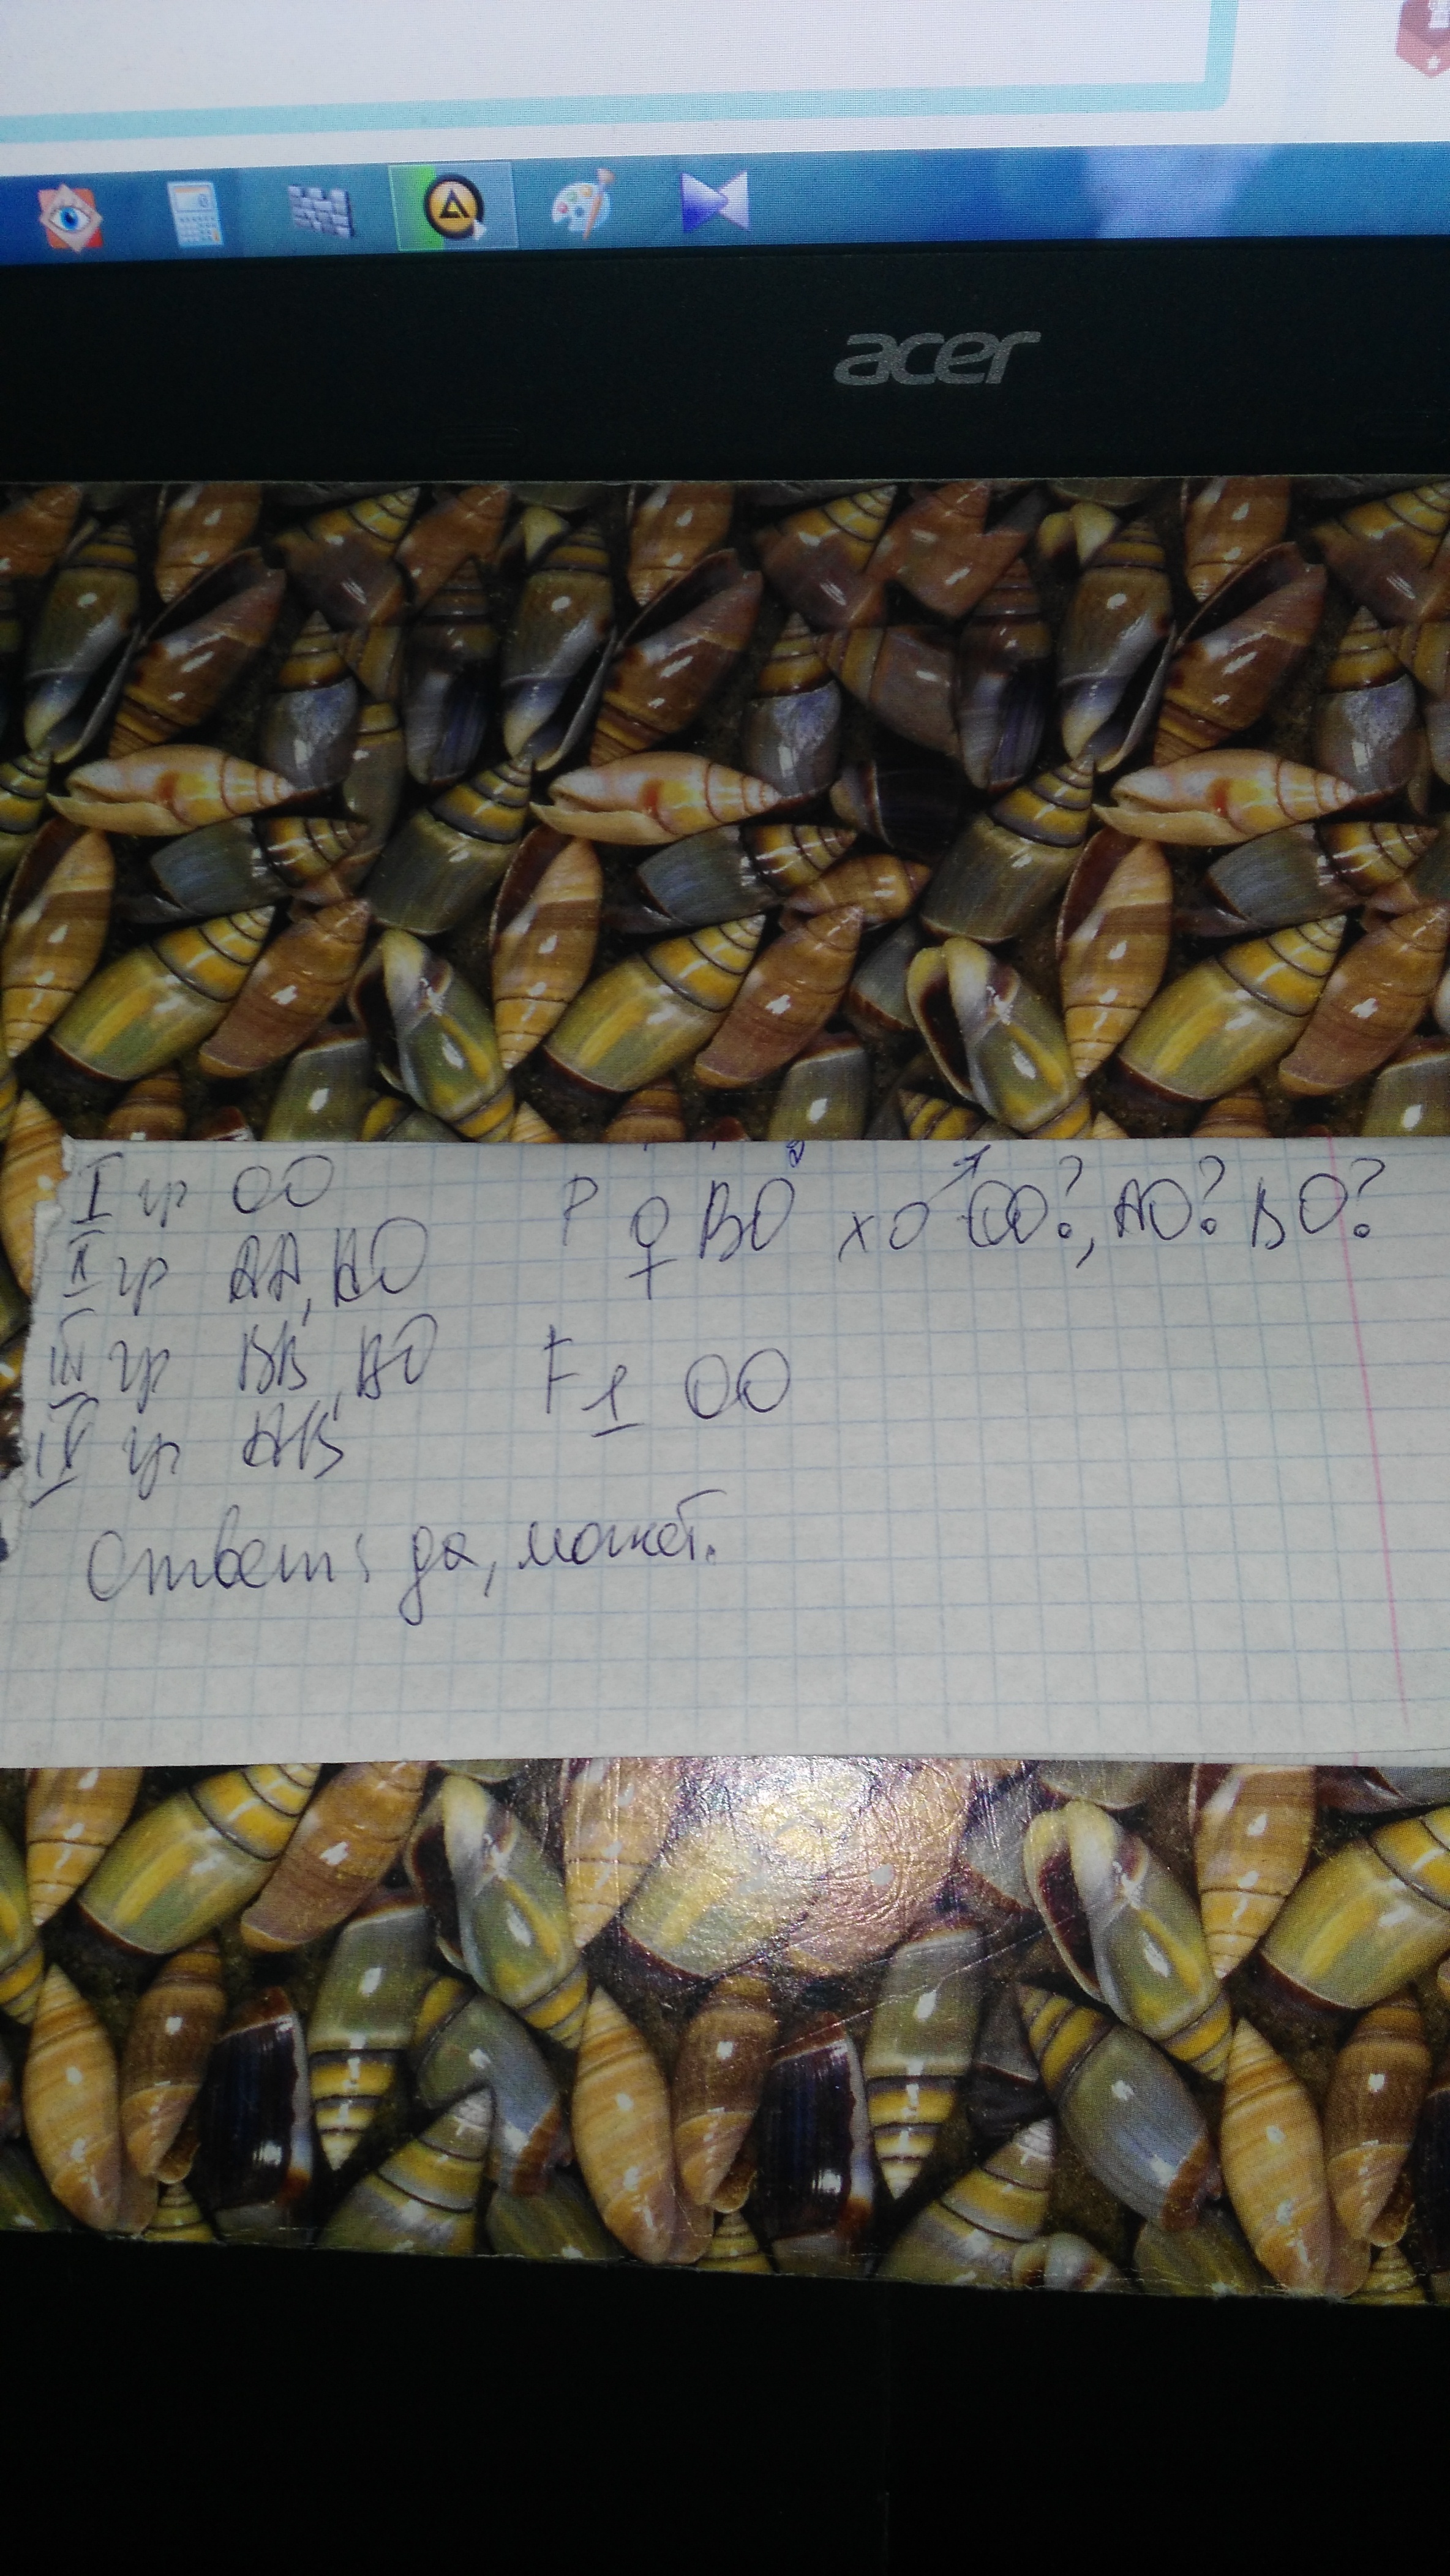 acer
I гр OO
II гр AA, AO
III гр BB, BO
IV гр AB
P ♀ BO x ♂ OO?, AO? BO?
F1 OO
Ответ: да, может.